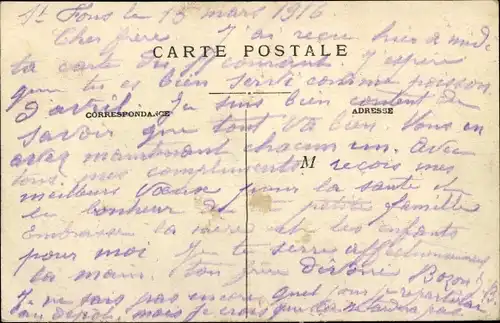 St Fons le 13 mars 1916
Cher frère J'ai reçu hier à midi
CARTE POSTALE
ta carte du courant. J'espère
que tu es bien servi comme poisson
d'avril. Je suis bien content de
CORRESPONDANCE
ADRESSE
savoir que tout va bien. Vous en
avez maintenant chacun un. Avec
M
tous mes compliments reçois mes
meilleurs vœux pour la santé et
le bonheur de ta petite famille
Embrasse la mère et les enfants
pour moi Je te serre affectueusement
la main. ton frère
Je ne sais pas encore quel jour je
au dépôt, mais je crois que ça ne tardera pas